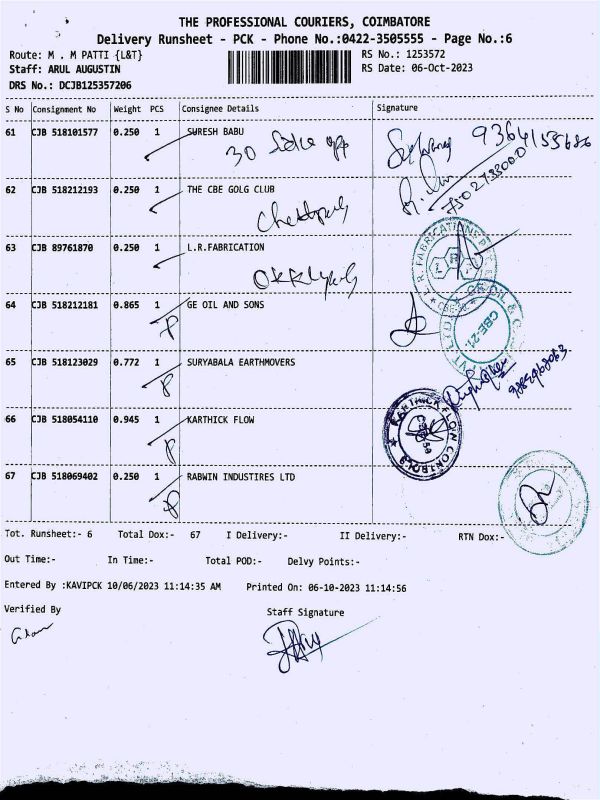 THE PROFESSIONAL COURIERS, COIMBATORE
Delivery Runsheet - PCK - Phone No.:0422-3505555 - Page No.:6
Route: M . M PATTI {L&T}
RS No.: 1253572
Staff: ARUL AUGUSTIN
RS Date: 06-Oct-2023
DRS No.: DCJB125357206
S No Consignment No Weight PCS Consignee Details Signature
61 CJB 518101577 0.250 1 SURESH BABU
30
9364155686
62 CJB 518212193 0.250 1 THE CBE GOLG CLUB
63 CJB 89761870 0.250 1 L.R.FABRICATION
64 CJB 518212181 0.865 1 GE OIL AND SONS
CBE-21.
65 CJB 518123029 0.772 1 SURYABALA EARTHMOVERS
66 CJB 518054110 0.945 1 KARTHICK FLOW
KARTHICK FLOW CONTROLS
67 CJB 518069402 0.250 1 RABWIN INDUSTIRES LTD
Tot. Runsheet:- 6 Total Dox:- 67 I Delivery:- II Delivery:- RTN Dox:-
Out Time:- In Time:- Total POD:- Delvy Points:-
Entered By :KAVIPCK 10/06/2023 11:14:35 AM Printed On: 06-10-2023 11:14:56
Verified By Staff Signature